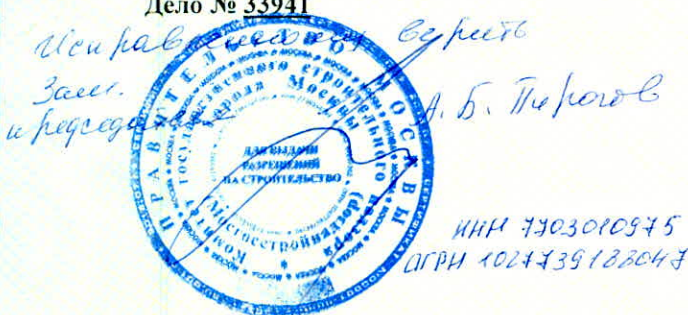 Дело № 33941
Исправленному верить
Зам.
председателя А. Б. Пирогов
ПРАВИТЕЛЬСТВО МОСКВЫ
Комитет государственного строительного надзора
города Москвы
(Мосгосстройнадзор)
ДЛЯ ВЫДАЧИ
РАЗРЕШЕНИЙ
НА СТРОИТЕЛЬСТВО
ИНН 7703010975
ОГРН